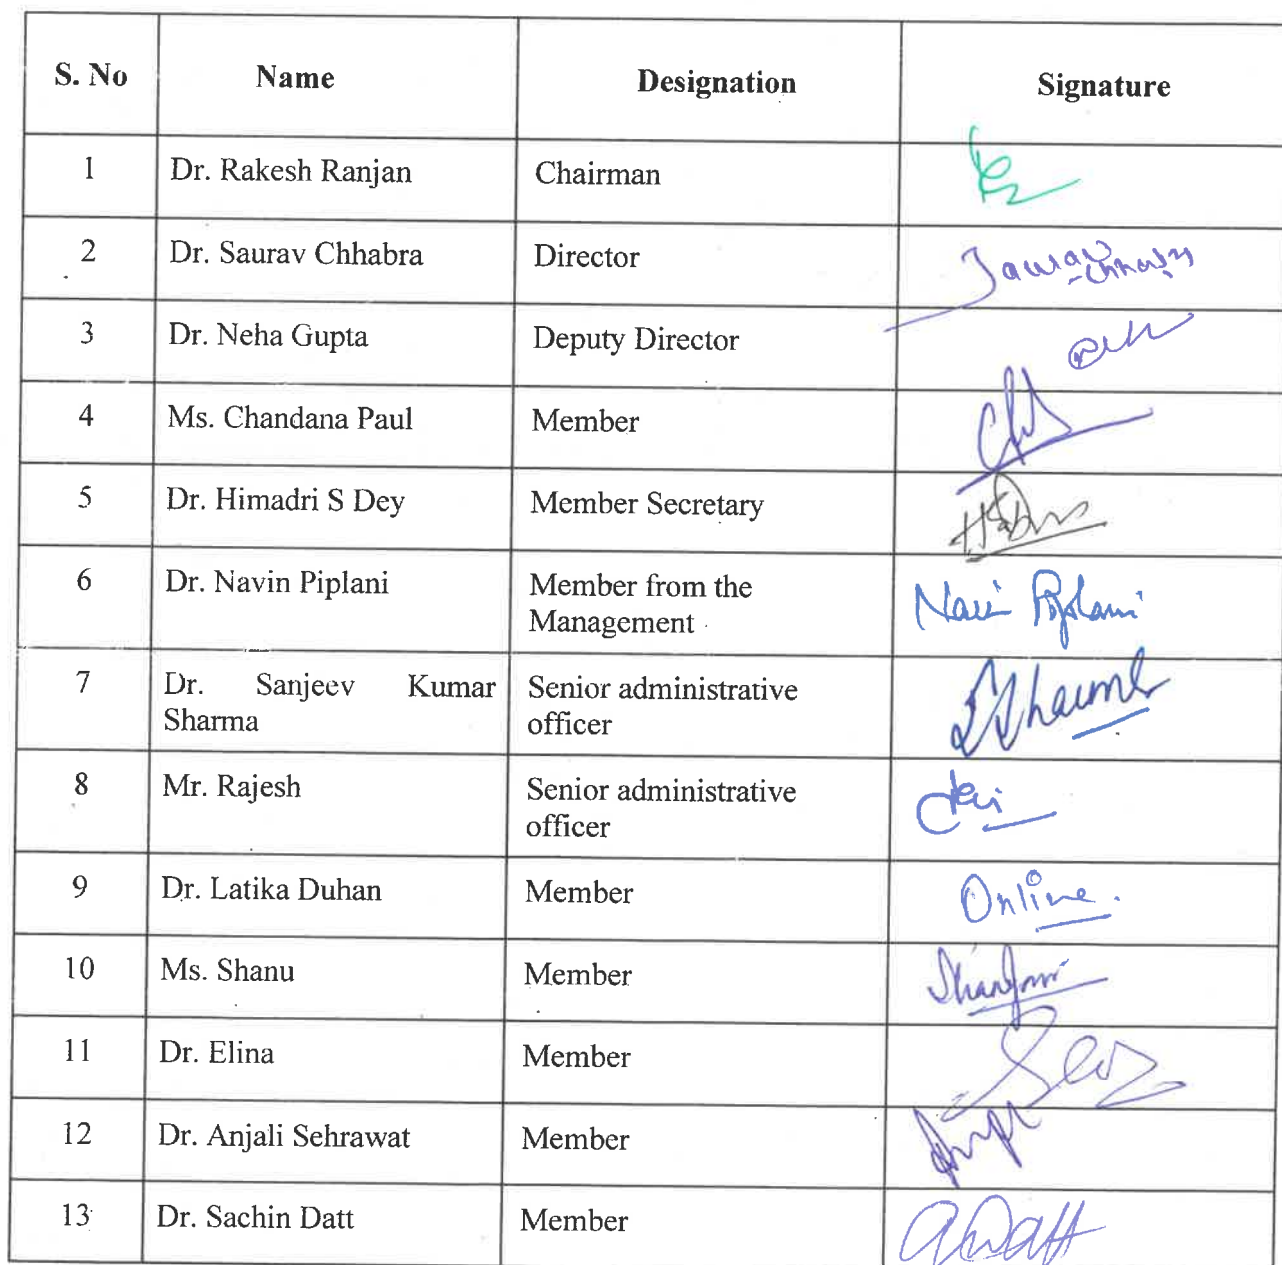 S. No Name Designation Signature
1 Dr. Rakesh Ranjan Chairman
2 Dr. Saurav Chhabra Director Saurav
Chhabra
3 Dr. Neha Gupta Deputy Director
4 Ms. Chandana Paul Member
5 Dr. Himadri S Dey Member Secretary
6 Dr. Navin Piplani Member from the
Management Navin Piplani
7 Dr. Sanjeev Kumar
Sharma Senior administrative
officer SSharma
8 Mr. Rajesh Senior administrative
officer
9 Dr. Latika Duhan Member Online.
10 Ms. Shanu Member
11 Dr. Elina Member
12 Dr. Anjali Sehrawat Member
13 Dr. Sachin Datt Member